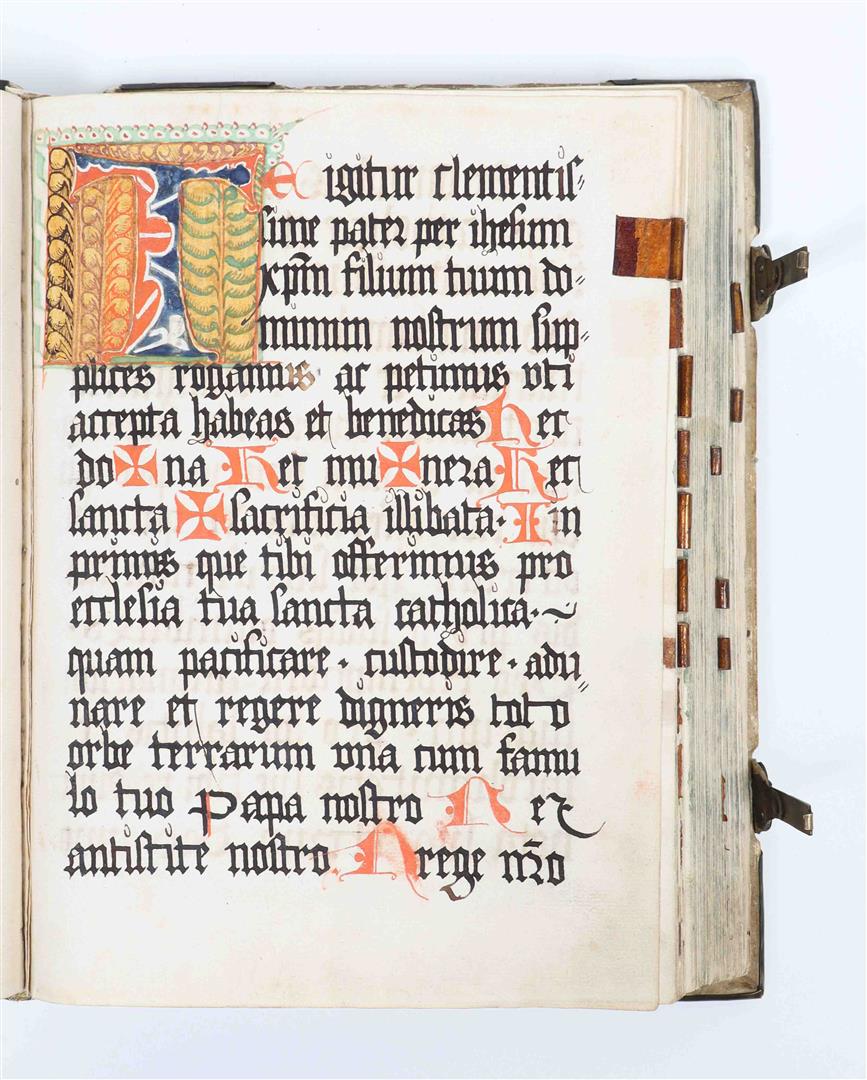 Te igitur clementis⸗
sime pater per ihesum
xp̄m filium tuum do⸗
minum nostrum sup⸗
plices rogamus ac petimus vti
accepta habeas et benedicas hec
do✠na Hec mu✠nera Hec
sancta ✠ sacrificia illibata· In
primis que tibi offerimus pro
ecclesia tua sancta catholica·~
quam pacificare · custodire · adu⸗
nare et regere digneris toto
orbe terrarum vna cum famu
lo tuo Papa nostro N et
antistite nostro N rege nr̄o